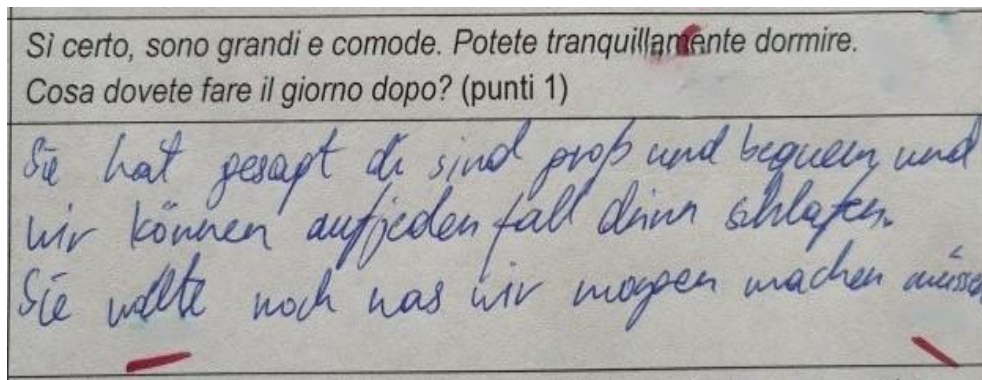 Sì certo, sono grandi e comode. Potete tranquillamente dormire.
Cosa dovete fare il giorno dopo? (punti 1)
Sie hat gesagt die sind groß und bequem und
wir können aufjeden fall drinn schlafen.
Sie wollte noch was wir morgen machen müssen